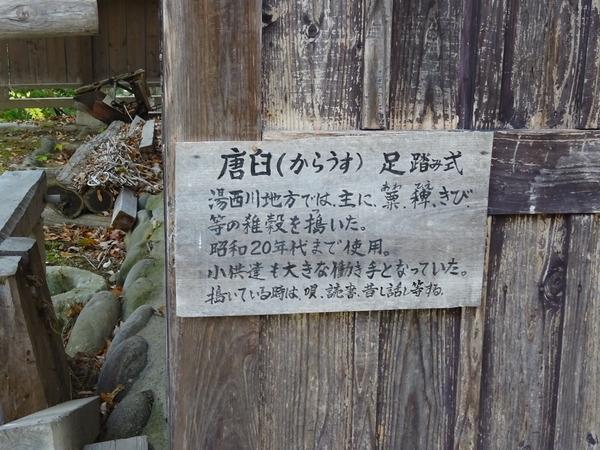 唐臼(からうす) 足踏み式
湯西川地方では、主に、粟、稗、きび、
等の雑穀を搗いた。
昭和20年代まで使用。
小供達も大きな働き手となっていた。
搗いている時は、唄、読書、昔し話し等する。